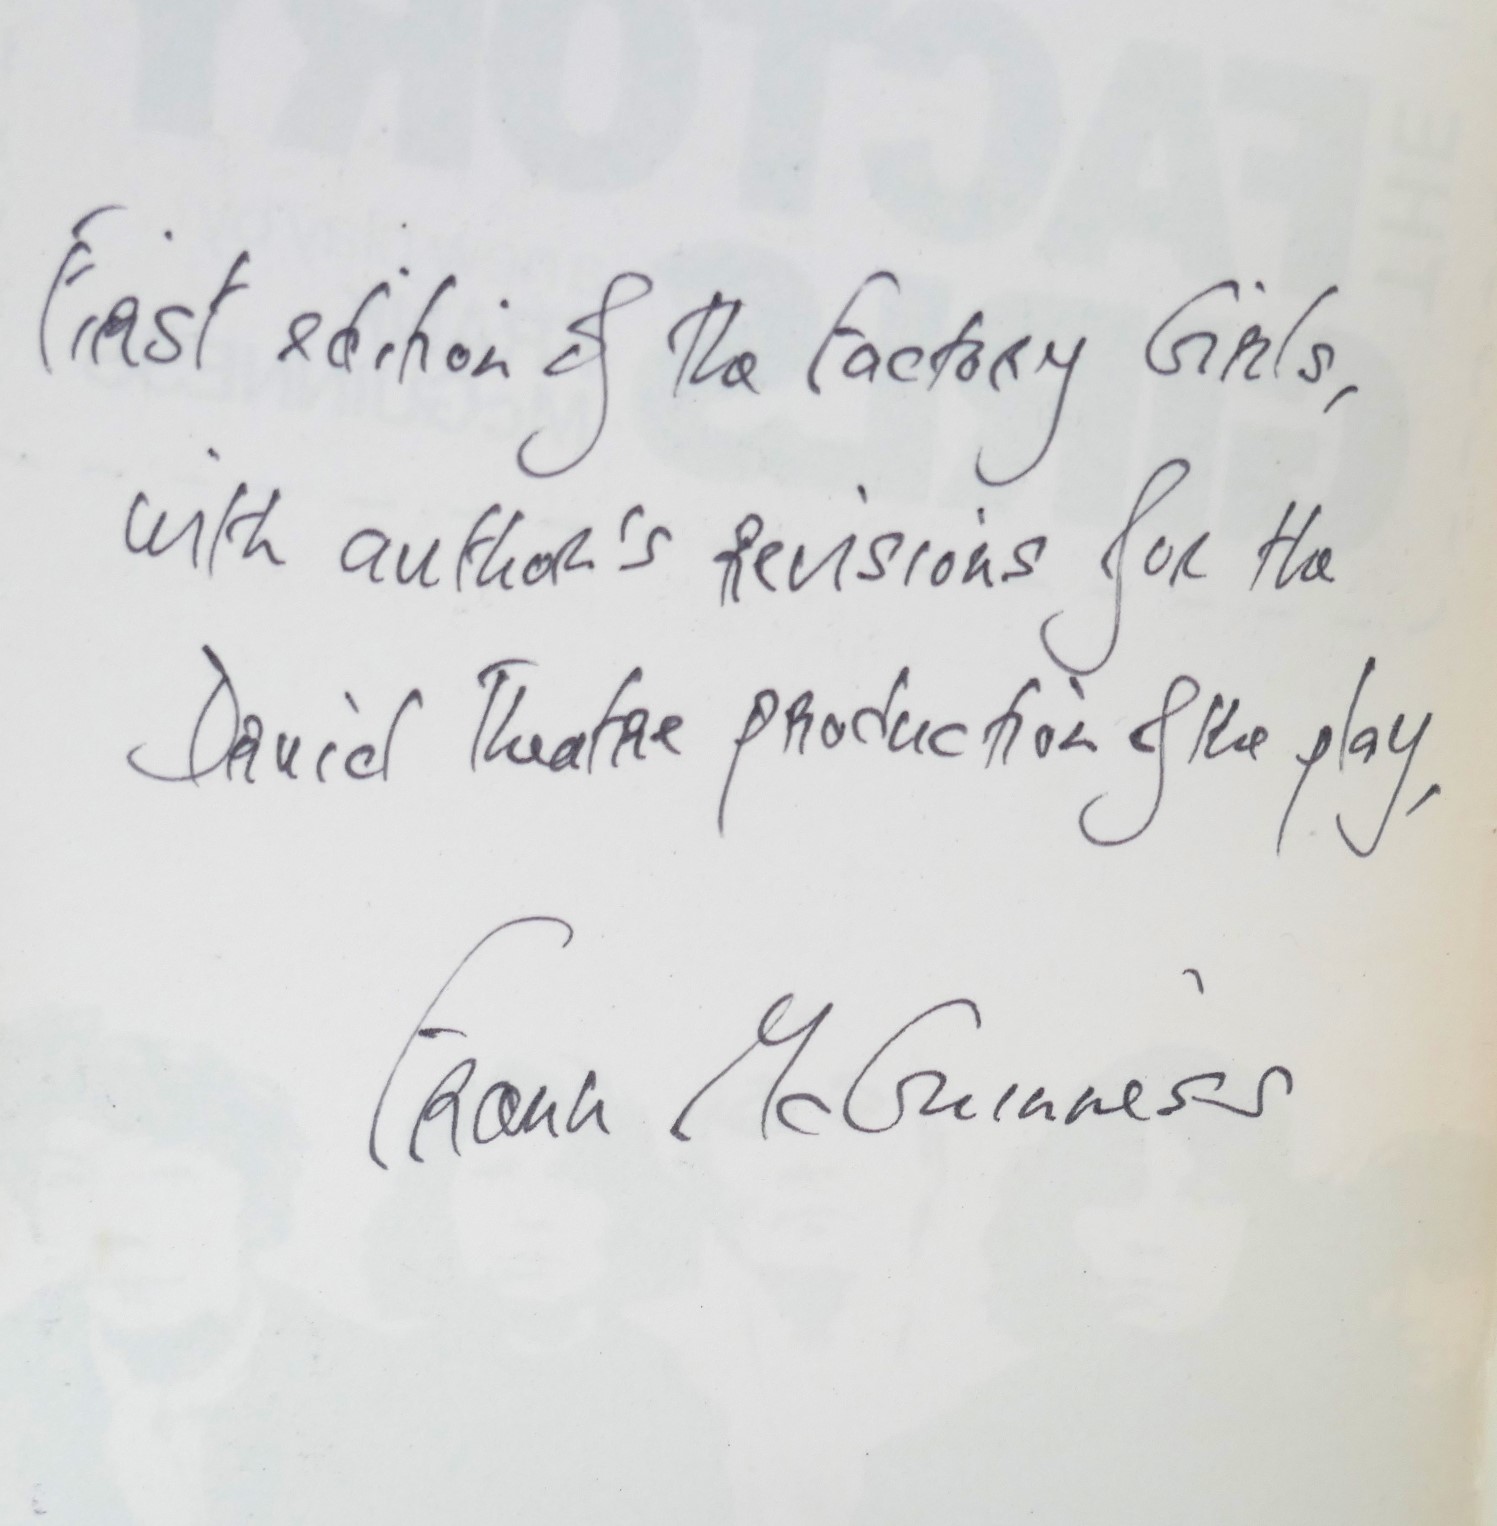 First edition of The Factory Girls,
with author's revisions for the
Druid Theatre production of the play,
Frank McGuinness
THE
FACTORY
GIRLS